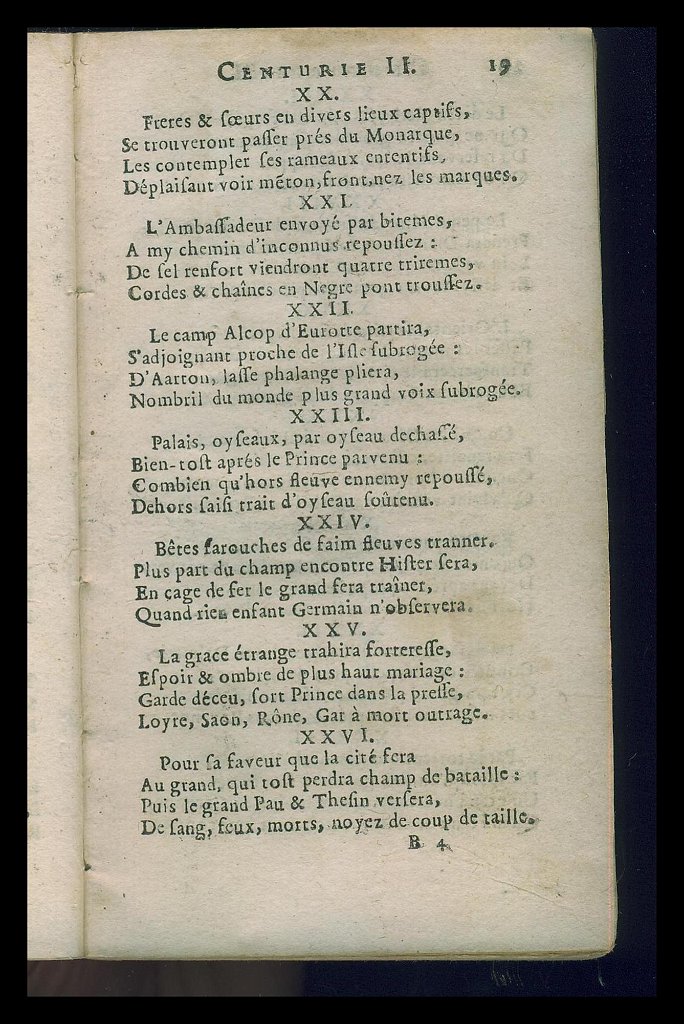 CENTURIE II. 19
XX.
Freres & ſœurs en divers lieux captifs,
Se trouveront paſſer prés du Monarque,
Les contempler ſes rameaux ententifs,
Déplaiſant voir mẽton, front, nez les marques.
XXI.
L'Ambaſſadeur envoyé par bitemes,
A my chemin d'inconnus repouſſez :
De ſel renfort viendront quatre triremes,
Cordes & chaînes en Negre pont trouſſez.
XXII.
Le camp Alcop d'Eurotte partira,
S'adjoignant proche de l'Iſle ſubrogée :
D'Aarton, laſſe phalange pliera,
Nombril du monde plus grand voix ſubrogée.
XXIII.
Palais, oyſeaux, par oyſeau dechaſſé,
Bien-toſt aprés le Prince parvenu :
Combien qu'hors fleuve ennemy repouſſé,
Dehors ſaiſi trait d'oyſeau ſoûtenu.
XXIV.
Bêtes farouches de faim fleuves tranner.
Plus part du champ encontre Hiſter ſera,
En cage de fer le grand fera traîner,
Quand rien enfant Germain n'obſervera.
XXV.
La grace étrange trahira forterefſe,
Eſpoir & ombre de plus haut mariage :
Garde déceu, fort Prince dans la preſſe,
Loyre, Saon, Rône, Gar à mort outrage.
XXVI.
Pour ſa faveur que la cité fera
Au grand, qui toſt perdra champ de bataille :
Puis le grand Pau & Theſin verſera,
De ſang, feux, morts, noyez de coup de taille.
B 4